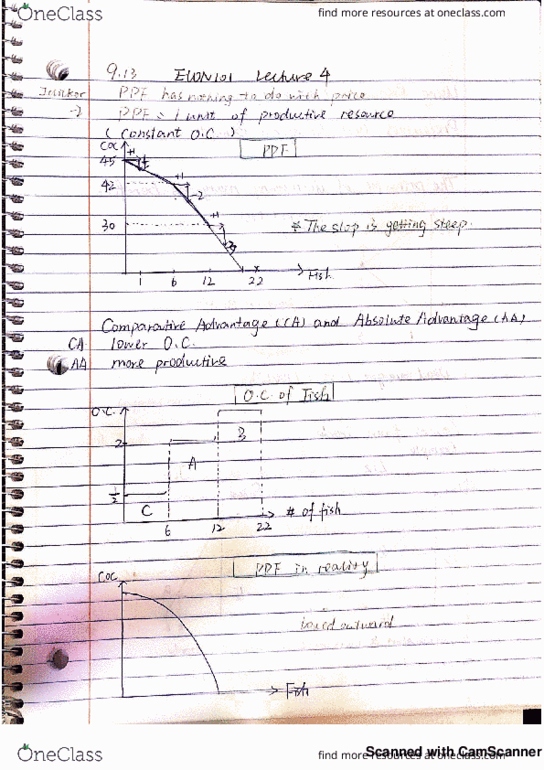 OneClass
find more resources at oneclass.com
9.13 ECON101 Lecture 4
PPF has nothing to do with price
PPF = 1 unit of productive resource
(Constant O.C.)
PPF
COC
+1
45
+1
42
-2
+1
30
* The slop is getting steep.
1 6 12 22 Fish
Comparative Advantage (CA) and Absolute Advantage (AA)
CA lower O.C.
AA more productive
O.C. of Fish
O.C.
B
2
A
1/2
C
# of fish
6 12 22
PPF in reality
COC
bowed outward
Fish
OneClass
find more resources at oneclass.com
Scanned with CamScanner